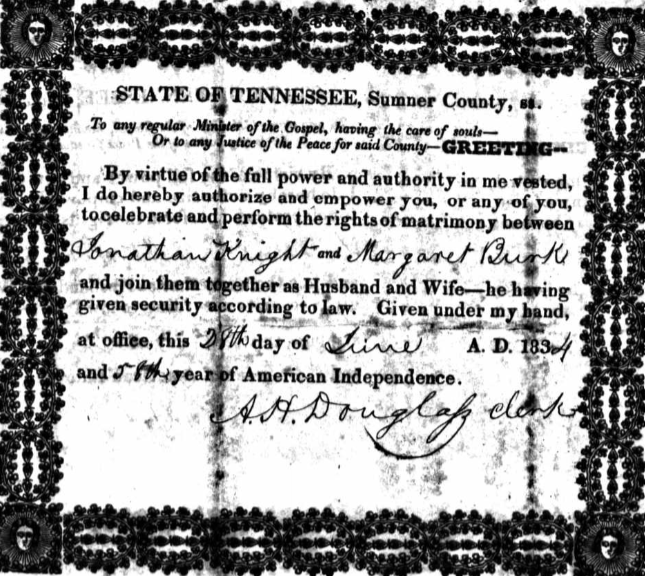 STATE OF TENNESSEE, Sumner County, ss.
To any regular Minister of the Gospel, having the care of souls—
Or to any Justice of the Peace for said County—GREETING—
By virtue of the full power and authority in me vested,
I do hereby authorize and empower you, or any of you,
to celebrate and perform the rights of matrimony between
Jonathan Knight and Margaret Burk
and join them together as Husband and Wife—he having
given security according to law. Given under my hand,
at office, this 28th day of June A. D. 1834
and 58th year of American Independence.
A. H. Douglass clerk